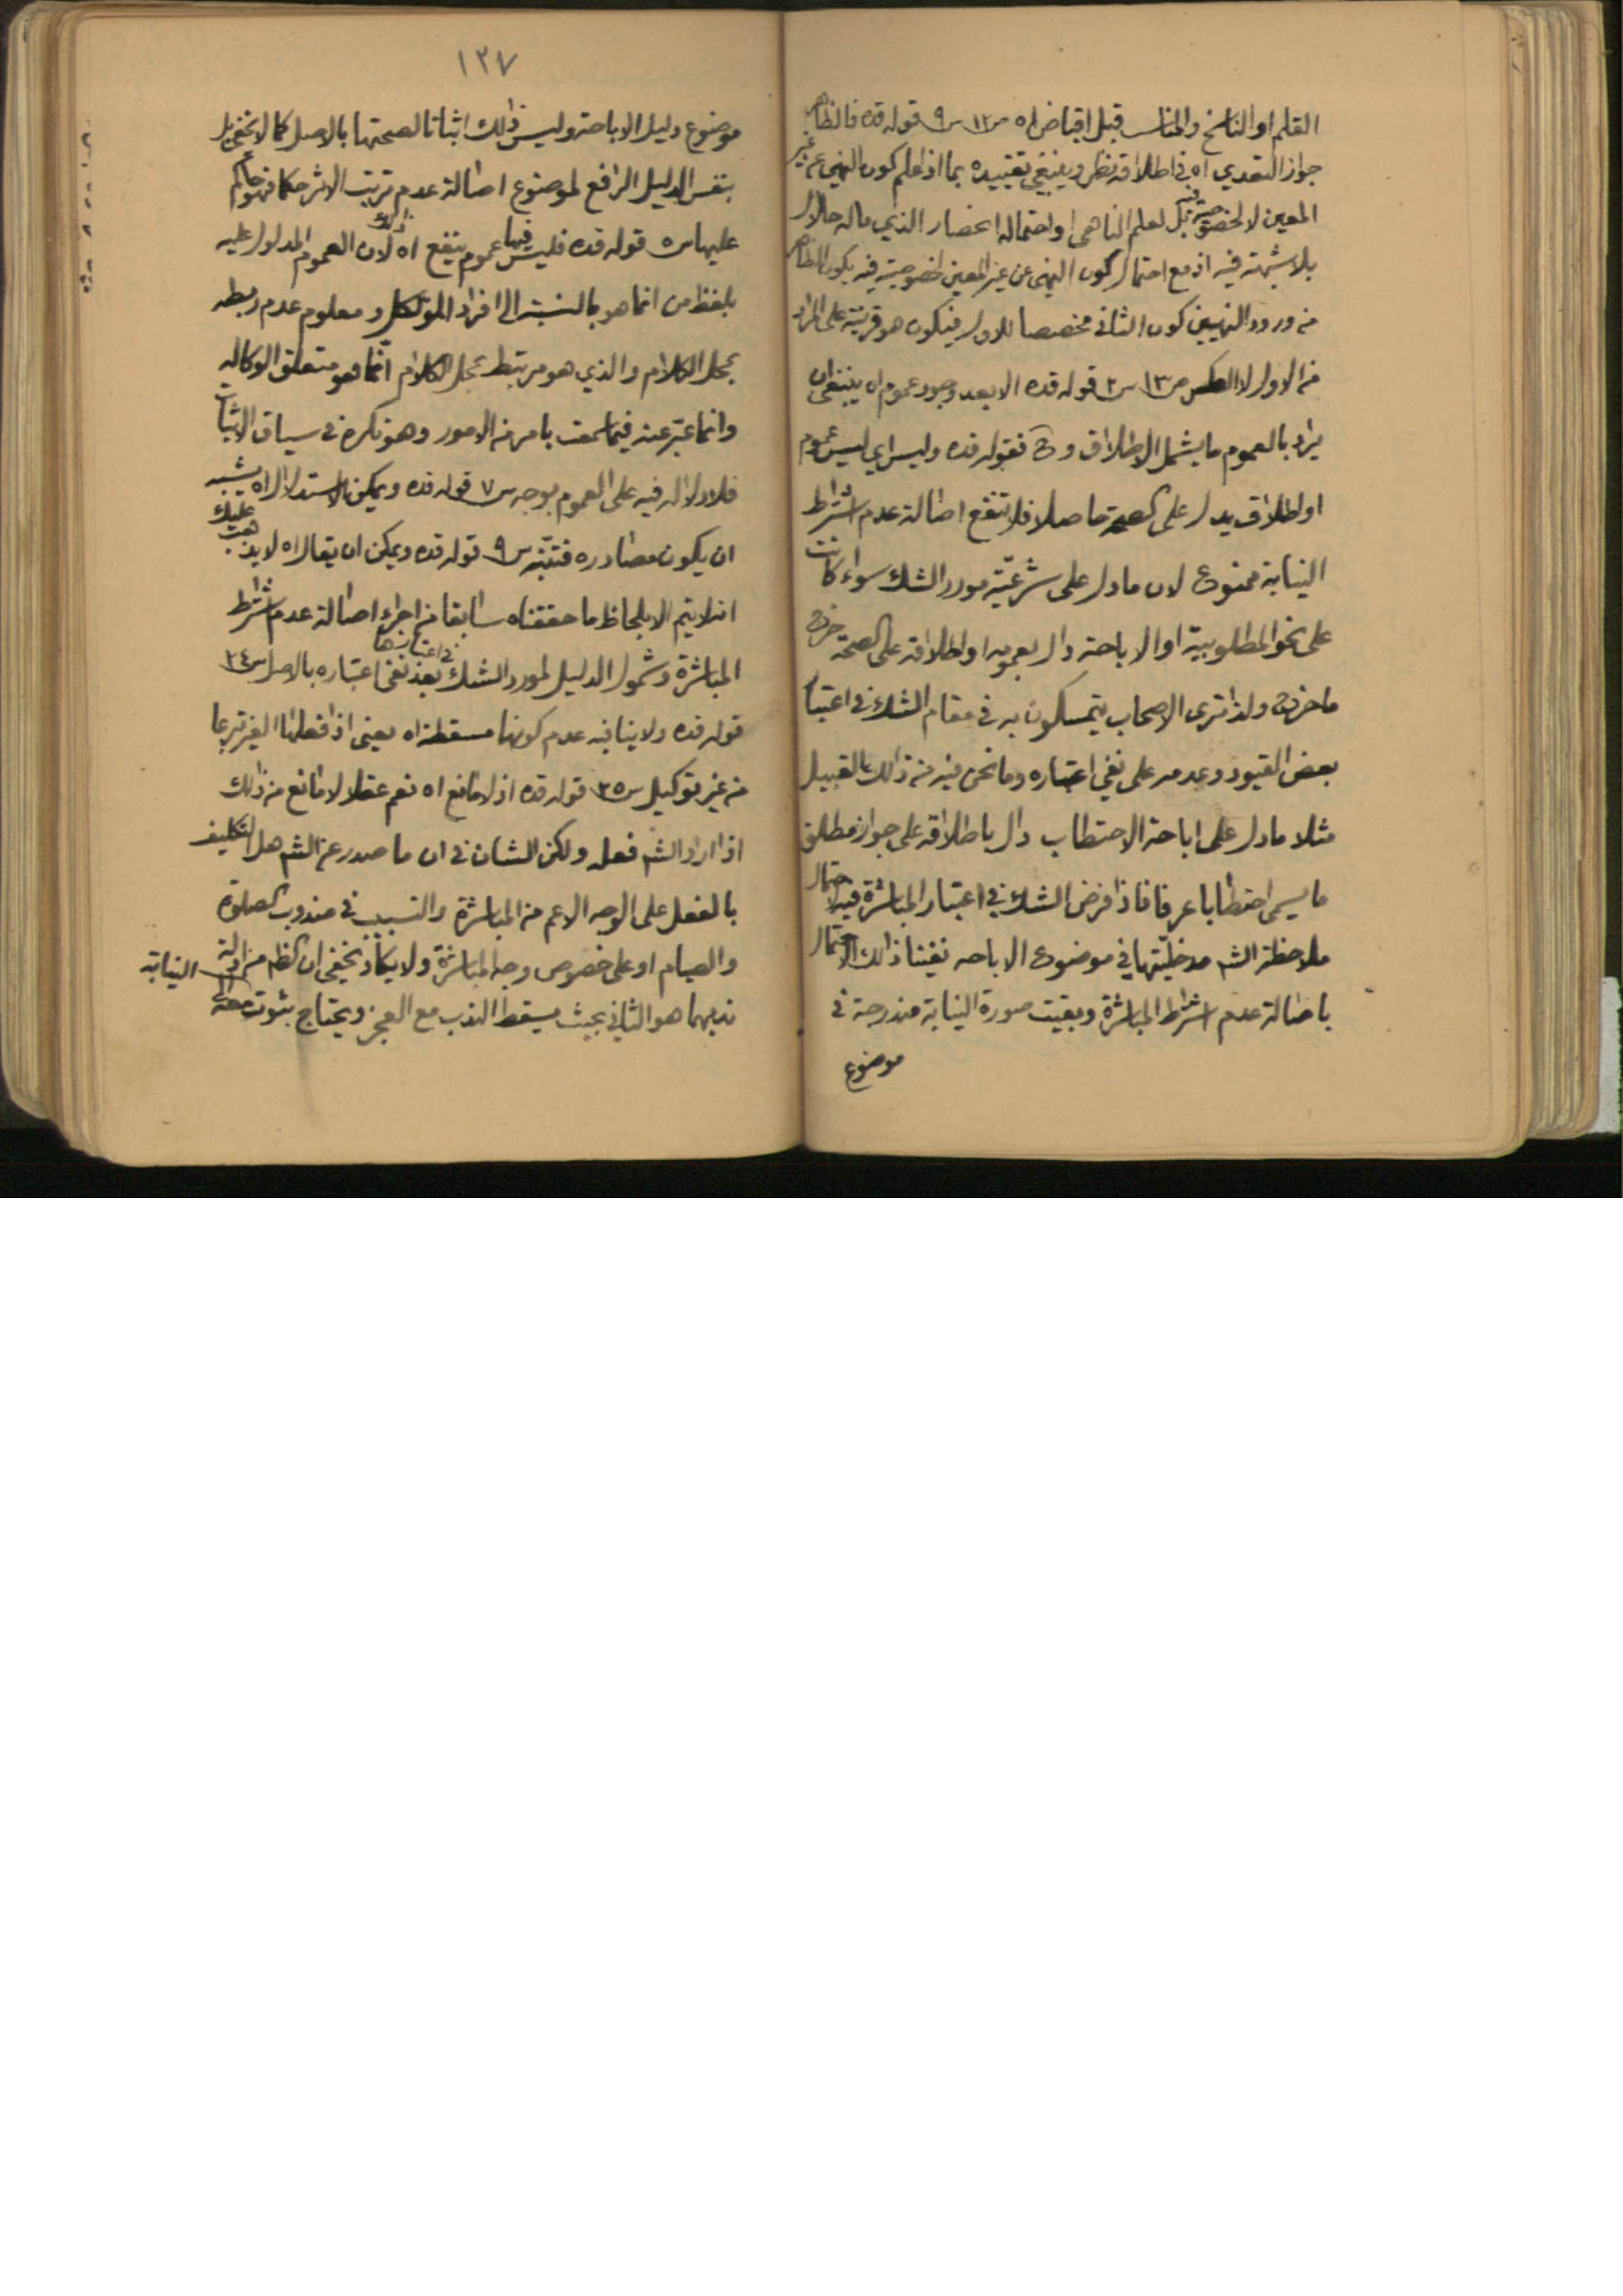 القلم او الناسخ والمناسب قبل اقباض اه ص١٢ س٩ قوله قده فالظاهر
جواز التعدي اه في اطلاقه نظر وينبغي تقييده بما اذا علم كون النهي عن غير
المعين لا لخصوصية فيه بل لعلم الناهي او احتماله انحصار الذي ماله حلال
بلا شبهة فيه اذ مع احتمال كون النهي عن غير المعين لخصوصية فيه يكون الظاهر
من ورود النهيين كون الثاني مخصصا للاول فيكون هو قرينة على المراد
من الاول لا العكس ص١٣ س٢ قوله قده الا بعد وجود عموم اه ينبغي ان
يراد بالعموم ما يشمل الاطلاق وح فقوله قده وليس اي ليس عموم
او اطلاق يدل على الصحة حاصلا فلا تنفع اصالة عدم اشتراط
النيابة ممنوع لان ما دل على شرعية مورد الشك سواء كانت
على نحو المطلوبية او الاباحة دال بعمومه او اطلاقه على الصحة خرج
ما خرج ولذا ترى الاصحاب يتمسكون به في مقام الشك في اعتبار
بعض القيود وعدمه على نفي اعتباره وما نحن فيه من ذلك القبيل
مثلا ما دل على اباحة الاحتطاب دال باطلاقه على جواز مطلق
ما يسمى احتطابا عرفا فاذا فرض الشك في اعتبار المباشرة فيه لاحتمال
ملاحظة الشم مدخليتها في موضوع الاباحه نفينا ذلك الاحتمال
باصالة عدم اشتراط المباشرة وبقيت صورة النيابة مندرجة في
موضوع
١٢٧
موضوع دليل الاباحة وليس ذلك اثباتا لصحتها بالاصل كما لا يخفى بل
بنفس الدليل الرافع لموضوع اصالة عدم ترتب الاثر حكما فهو حاكم
عليها س٥ قوله قده فليس فيها عموم ينفع اه ذلك لان العموم المدلول عليه
بلفظ من انما هو بالنسبة الى افراد الموكل ومعلوم عدم ربطه
بمحل الكلام والذي هو مرتبط بمحل الكلام انما هو متعلق الوكاله
وانما عبر عنه فيما سمعت بامر من الامور وهو نكرة في سياق الاثبات
فلا دلاله فيه على العموم بوجه س٧ قوله قده ويمكن الاستدلال اه يشبه
ان يكون مصادره فتنبه س٩ قوله قده ويمكن ان يقال اه لا يذهب عليك
انه لا يتم الا بلحاظ ما حققناه سابقا من اجراء اصالة عدم اشتراط
المباشرة وشمول الدليل لمورد الشك في اعتبارها بعد نفي اعتباره بالاصل س٢٤
قوله قده ولا ينافيه عدم كونها مسقطة اه يعني اذا فعلها الغير تبرعا
من غير توكيل س٢٥ قوله قده اذ لا مانع اه نعم عقلا لا مانع من ذلك
اذا اراد الشم فعله ولكن الشان في ان ما صدر عن الشم هل التكليف
بالفعل على الوجه الاعم من المباشرة والتسبيب في مندوب الصلوة
والصيام او على خصوص وجه المباشرة ولا يكاد يخفى ان الظم من ادلة
ندبهما هو الثاني بحيث يسقط الندب مع العجز ويحتاج ثبوت النيابة